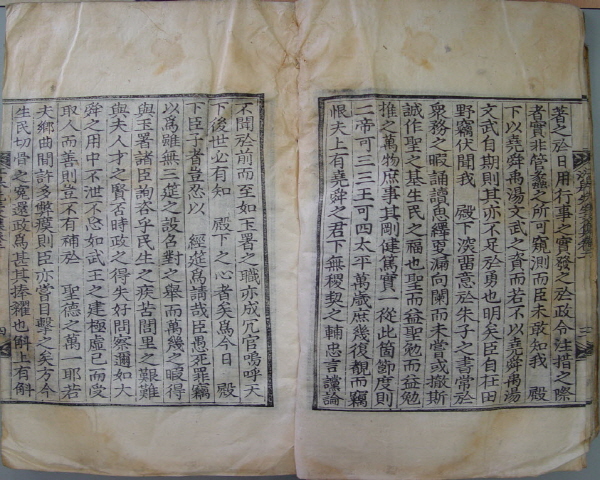 著之於日用行事之實發之於政令注措之際
者實非管蠡之所可窺測而臣未敢知我 殿
下以堯舜禹湯文武之資而若不以堯舜禹湯
文武自期則其亦不足於勇也明矣臣自在田
野竊伏聞我 殿下深留意於朱子之書常於
衆務之暇誦讀魚繹更漏向闌而未嘗或撤斯
誠作聖之基生民之福也聖而益聖勉而益勉
推之萬物庶事其剛健篤實一從此箇節度則
二帝可三三王可四太平萬歲庶幾復覩而竊
恨夫上有堯舜之君下無稷契之輔忠言讜論
不聞於前而至如玉署之職亦成冗官嗚呼天
下後世必有知 殿下之心者矣爲今日 殿
下臣子者豈忍以 經筵爲請哉臣愚死罪竊
以爲雖無三筵之設召對之舉而萬幾之暇得
與玉署諸臣詢咨乎民生之疾苦閭里之艱難
與夫人才之賢否時政之得失好問察邇如大
舜之用中不泄不忘如武王之建極虛己而受
取人而善則豈不有補於 聖德之萬一耶若
夫鄉曲間許多弊瘼則臣亦嘗目擊之矣方今
生民切骨之寃還政爲甚其捧糴也斛上有斛